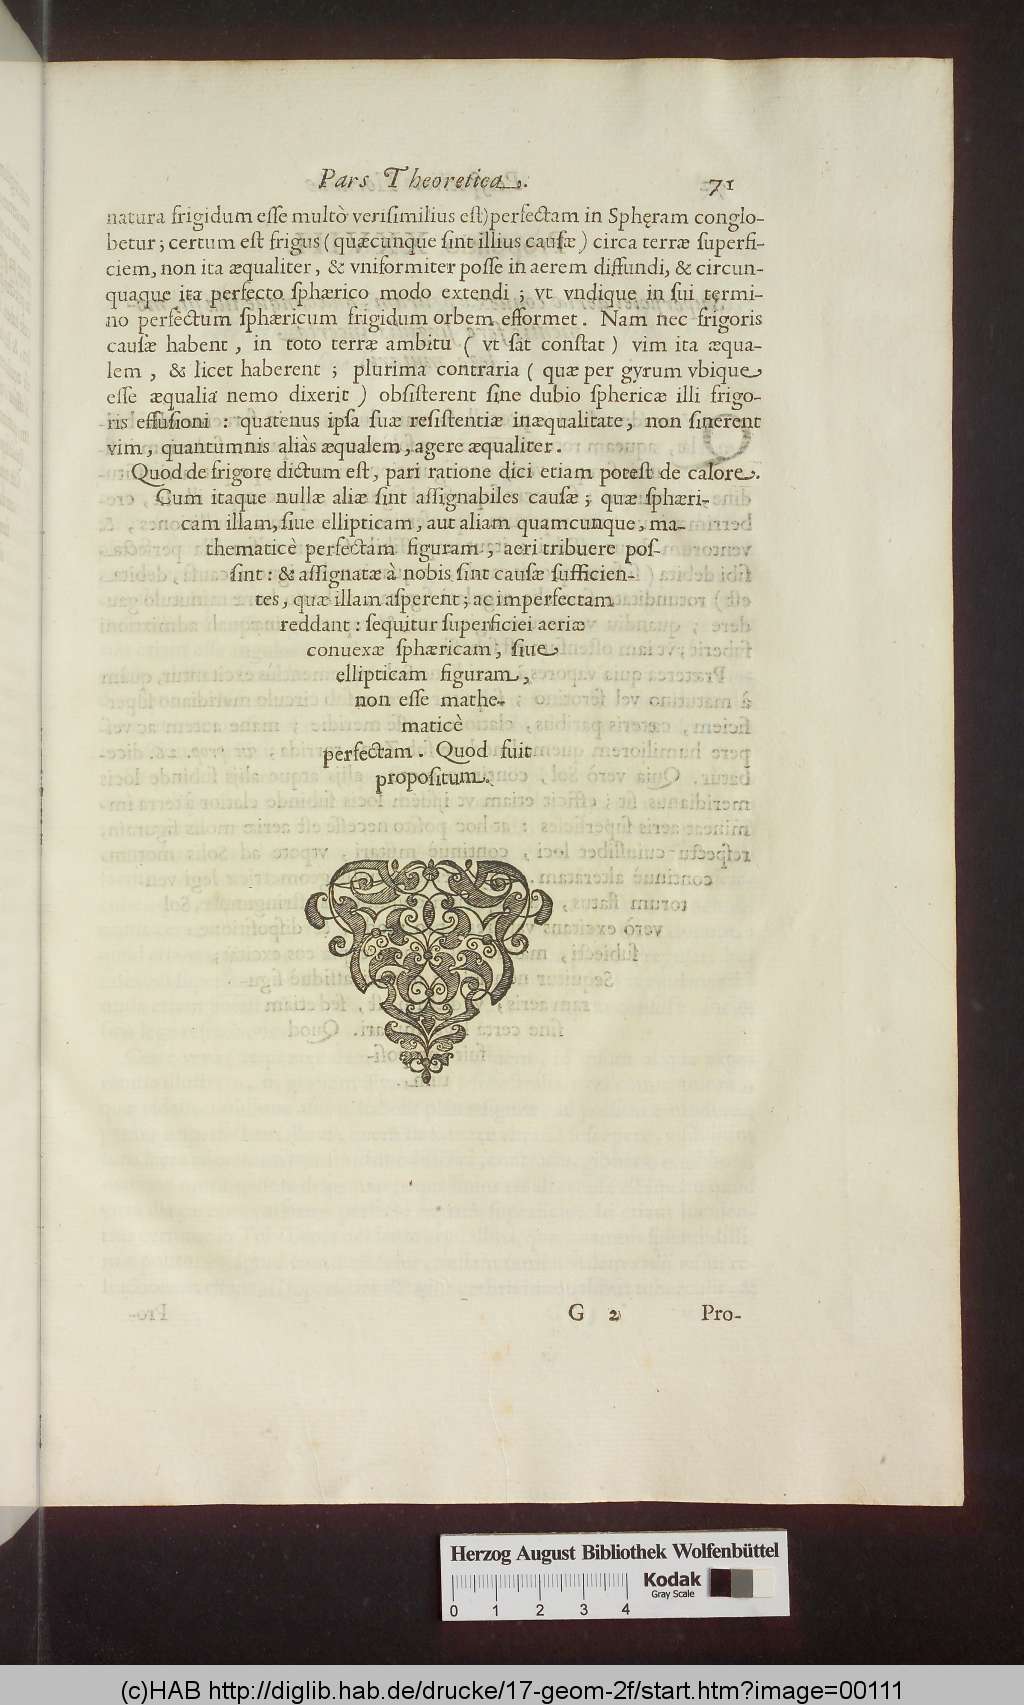 Pars Theoretica. 71
natura frigidum eſſe multò veriſimilius eſt) perfectam in Sphęram conglo-
betur; certum eſt frigus (quæcunque ſint illius cauſæ) circa terræ ſuperfi-
ciem, non ita æqualiter, & vniformiter poſſe in aerem diffundi, & circun-
quaque ita perfecto ſphærico modo extendi; vt vndique in ſui tęrmi-
no perfectum ſphæricum frigidum orbem efformet. Nam nec frigoris
cauſæ habent, in toto terræ ambitu (vt ſat conſtat) vim ita æqua-
lem, & licet haberent; plurima contraria (quæ per gyrum vbique
eſſe æqualia nemo dixerit) obſiſterent ſine dubio ſphericæ illi frigo-
ris effuſioni: quatenus ipſa ſuæ reſiſtentiæ inæqualitate, non ſinerent
vim, quantumnis aliàs æqualem, agere æqualiter.
Quod de frigore dictum eſt, pari ratione dici etiam poteſt de calore.
Cum itaque nullæ aliæ ſint aſſignabiles cauſæ; quæ ſphæri-
cam illam, ſiue ellipticam, aut aliam quamcunque, ma-
thematicè perfectam figuram, aeri tribuere poſ-
ſint: & aſſignatæ à nobis ſint cauſæ ſufficien-
tes, quæ illam aſperent; ac imperfectam
reddant: ſequitur ſuperficiei aeriæ
conuexæ ſphæricam, ſiue
ellipticam figuram,
non eſſe mathe-
maticè
perfectam. Quod fuit
propoſitum.
G 2 Pro-
Herzog August Bibliothek Wolfenbüttel
Kodak
Gray Scale
0 1 2 3 4
(c)HAB http://diglib.hab.de/drucke/17-geom-2f/start.htm?image=00111